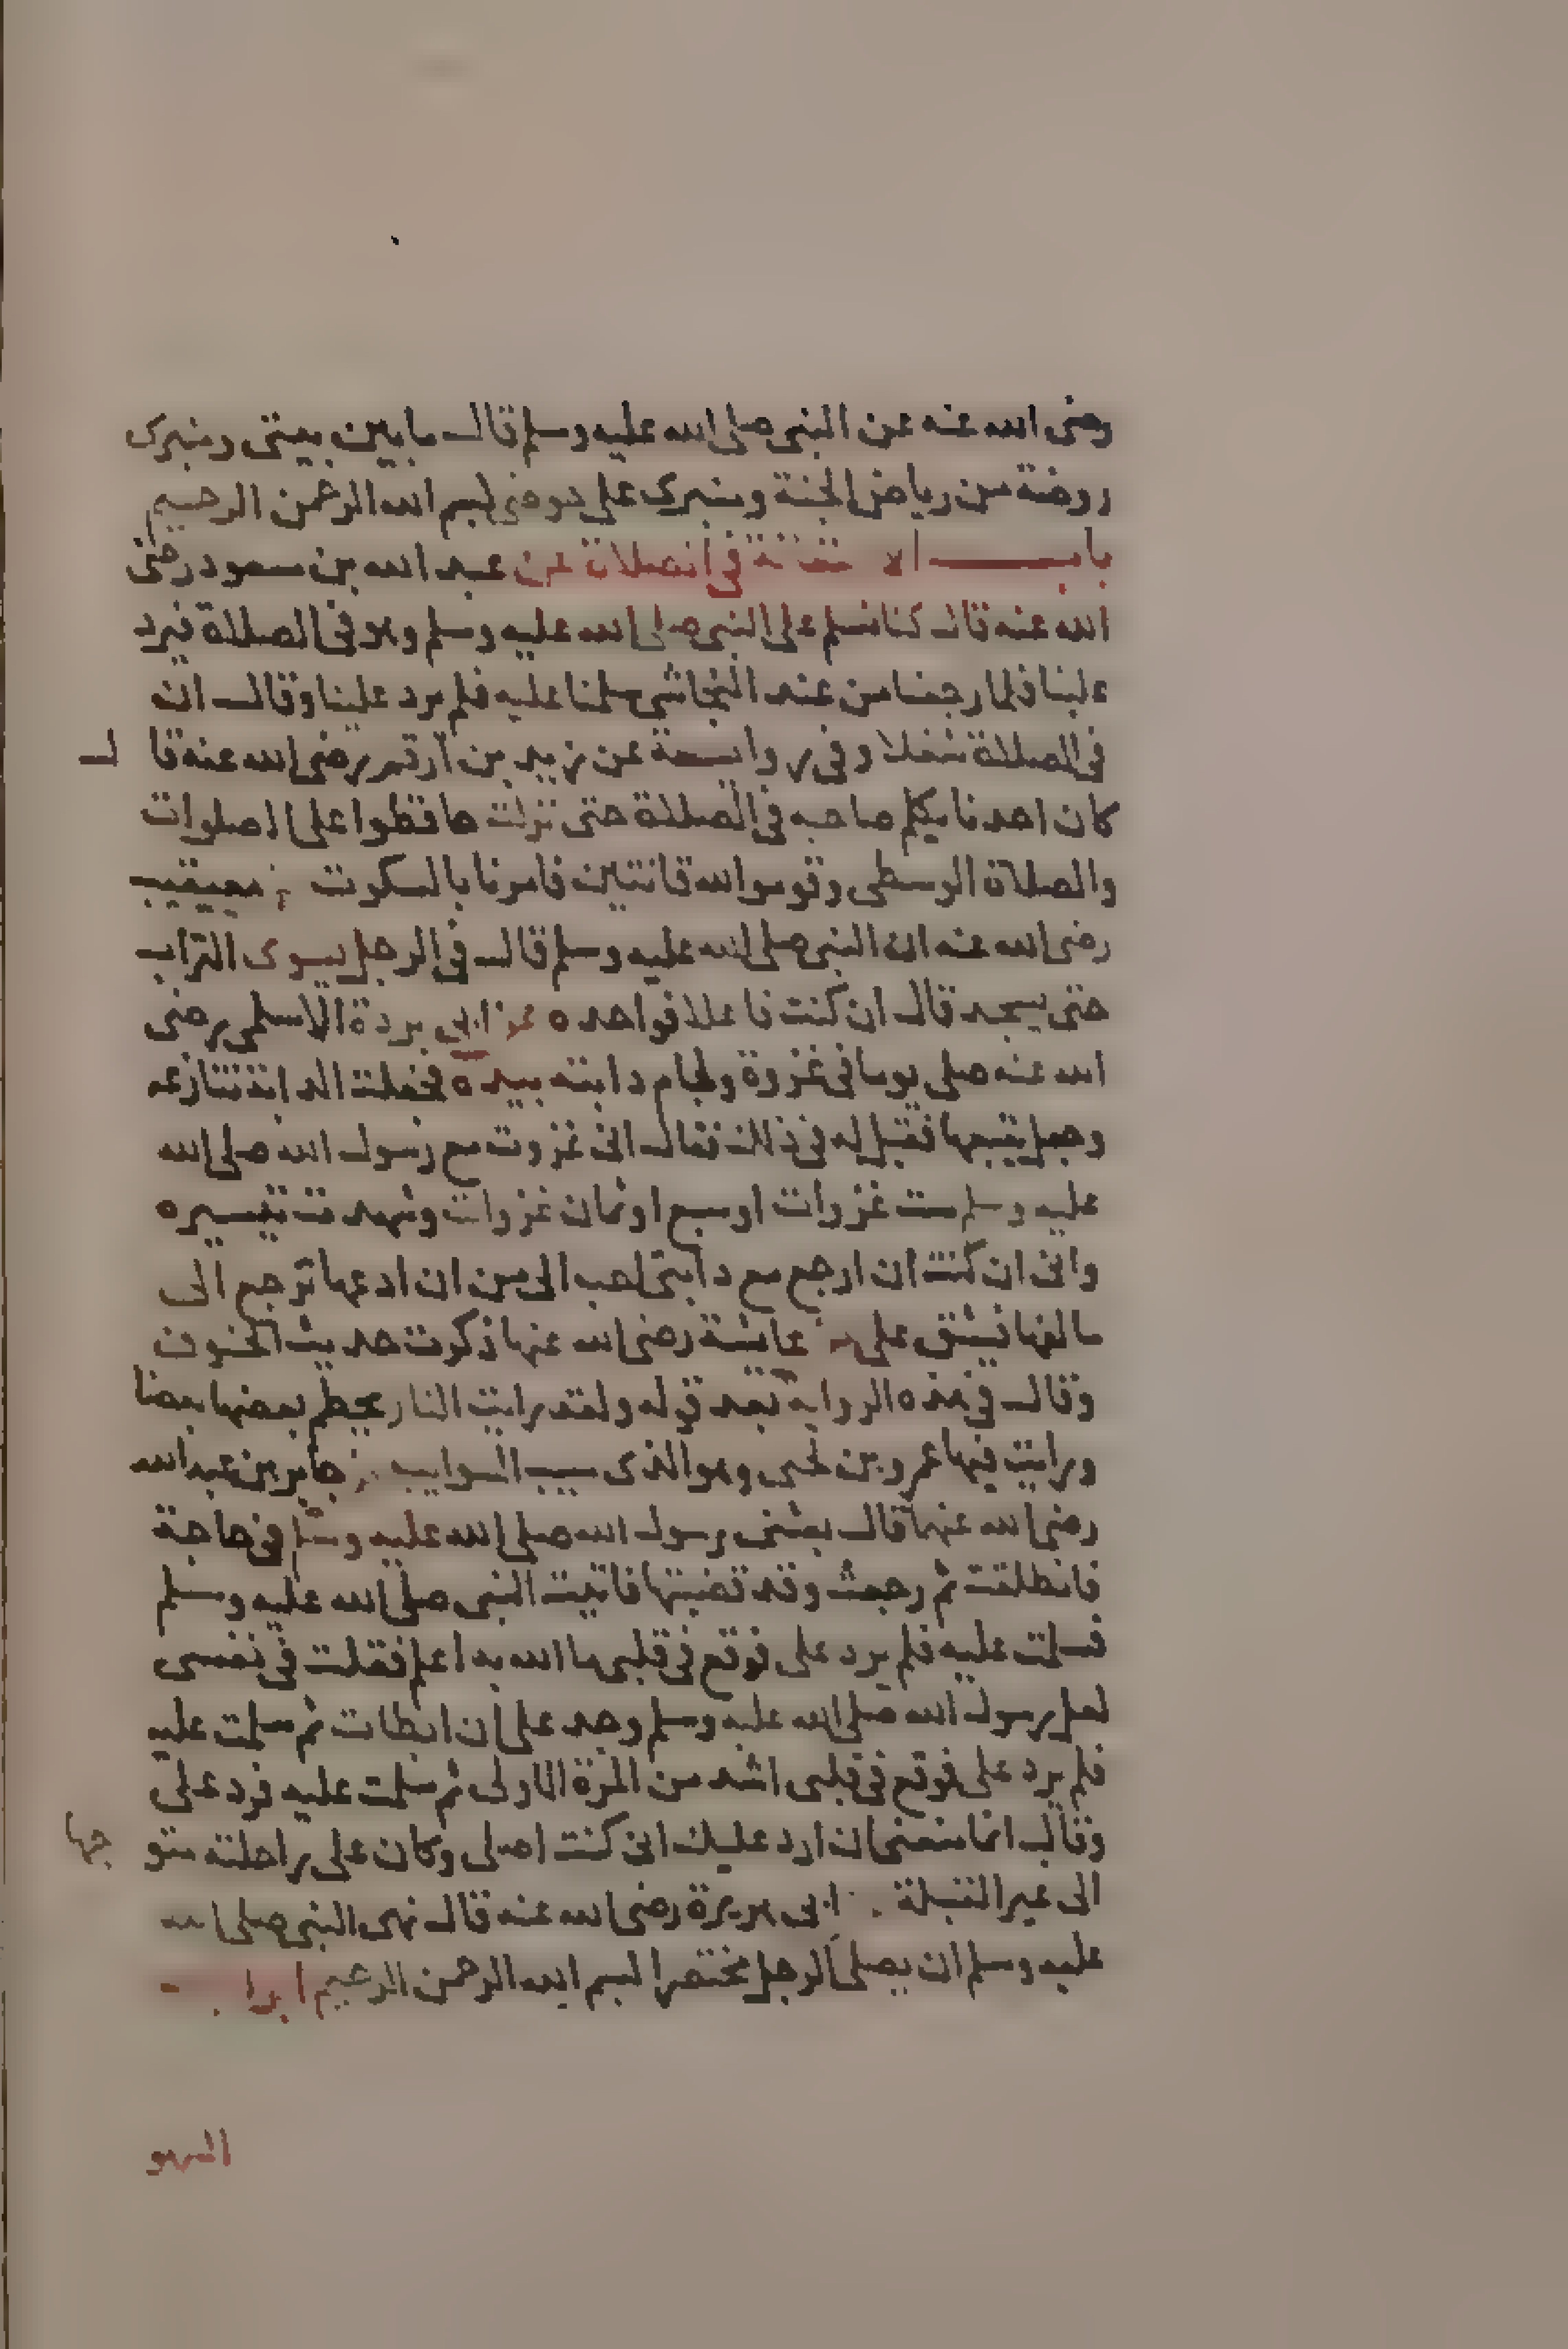 رضى الله عنه عن النبى صلى الله عليه وسلم قال ما بين بيتى ومنبرى
روضة من رياض الجنة ومنبرى على حوضى بسم الله الرحمن الرحيم
باب فى الصلاة عن عبد الله بن مسعود رضى
الله عنه قال كنا نسلم على النبى صلى الله عليه وسلم وهو فى الصلاة فيرد
علينا فلما رجعنا من عند النجاشى سلمنا عليه فلم يرد علينا وقال ان
فى الصلاة شغلا وفى رواية عن زيد بن ارقم رضى الله عنه قال
كان احدنا يكلم صاحبه فى الصلاة حتى نزلت حافظوا على الصلوات
والصلاة الوسطى وقوموا لله قانتين فامرنا بالسكوت معيقيب
رضى الله عنه ان النبى صلى الله عليه وسلم قال فى الرجل يسوى التراب
حتى يسجد قال ان كنت فاعلا فواحده عن ابى بردة الاسلمى رضى
الله عنه صلى يوما فى غزوة ولجام دابته بيده فجعلت الدابة تنازعه
وجعل يتبعها فقيل له فى ذلك فقال انى غزوت مع رسول الله صلى الله
عليه وسلم ست غزوات او سبع او ثمان غزوات وشهدت تيسيره
وانى ان كنت ان ارجع مع دابتى احب الى من ان ادعها ترجع الى
مالفها فيشق على عايشة رضى الله عنها ذكرت حديث الخسوف
وقال فى هذه الرواية بعد قوله ولقد رايت النار يحطم بعضها بعضا
ورايت فيها عمرو بن لحى وهو الذى سيب السوايب جابر بن عبد الله
رضى الله عنهما قال بعثنى رسول الله صلى الله عليه وسلم فى حاجة
فانطلقت ثم رجعت وقد قضيتها فاتيت النبى صلى الله عليه وسلم
فسلمت عليه فلم يرد على فوقع فى قلبى ما الله به اعلم فقلت فى نفسى
لعل رسول الله صلى الله عليه وسلم وجد على ان ابطات ثم سلمت عليه
فلم يرد على فوقع فى قلبى اشد من المرة الاولى ثم سلمت عليه فرد على
وقال انما منعنى ان ارد عليك انى كنت اصلى وكان على راحلته متوجها
الى غير القبلة ابى هريرة رضى الله عنه قال نهى النبى صلى الله
عليه وسلم ان يصلى الرجل مختصرا بسم الله الرحمن الرحيم
السهو